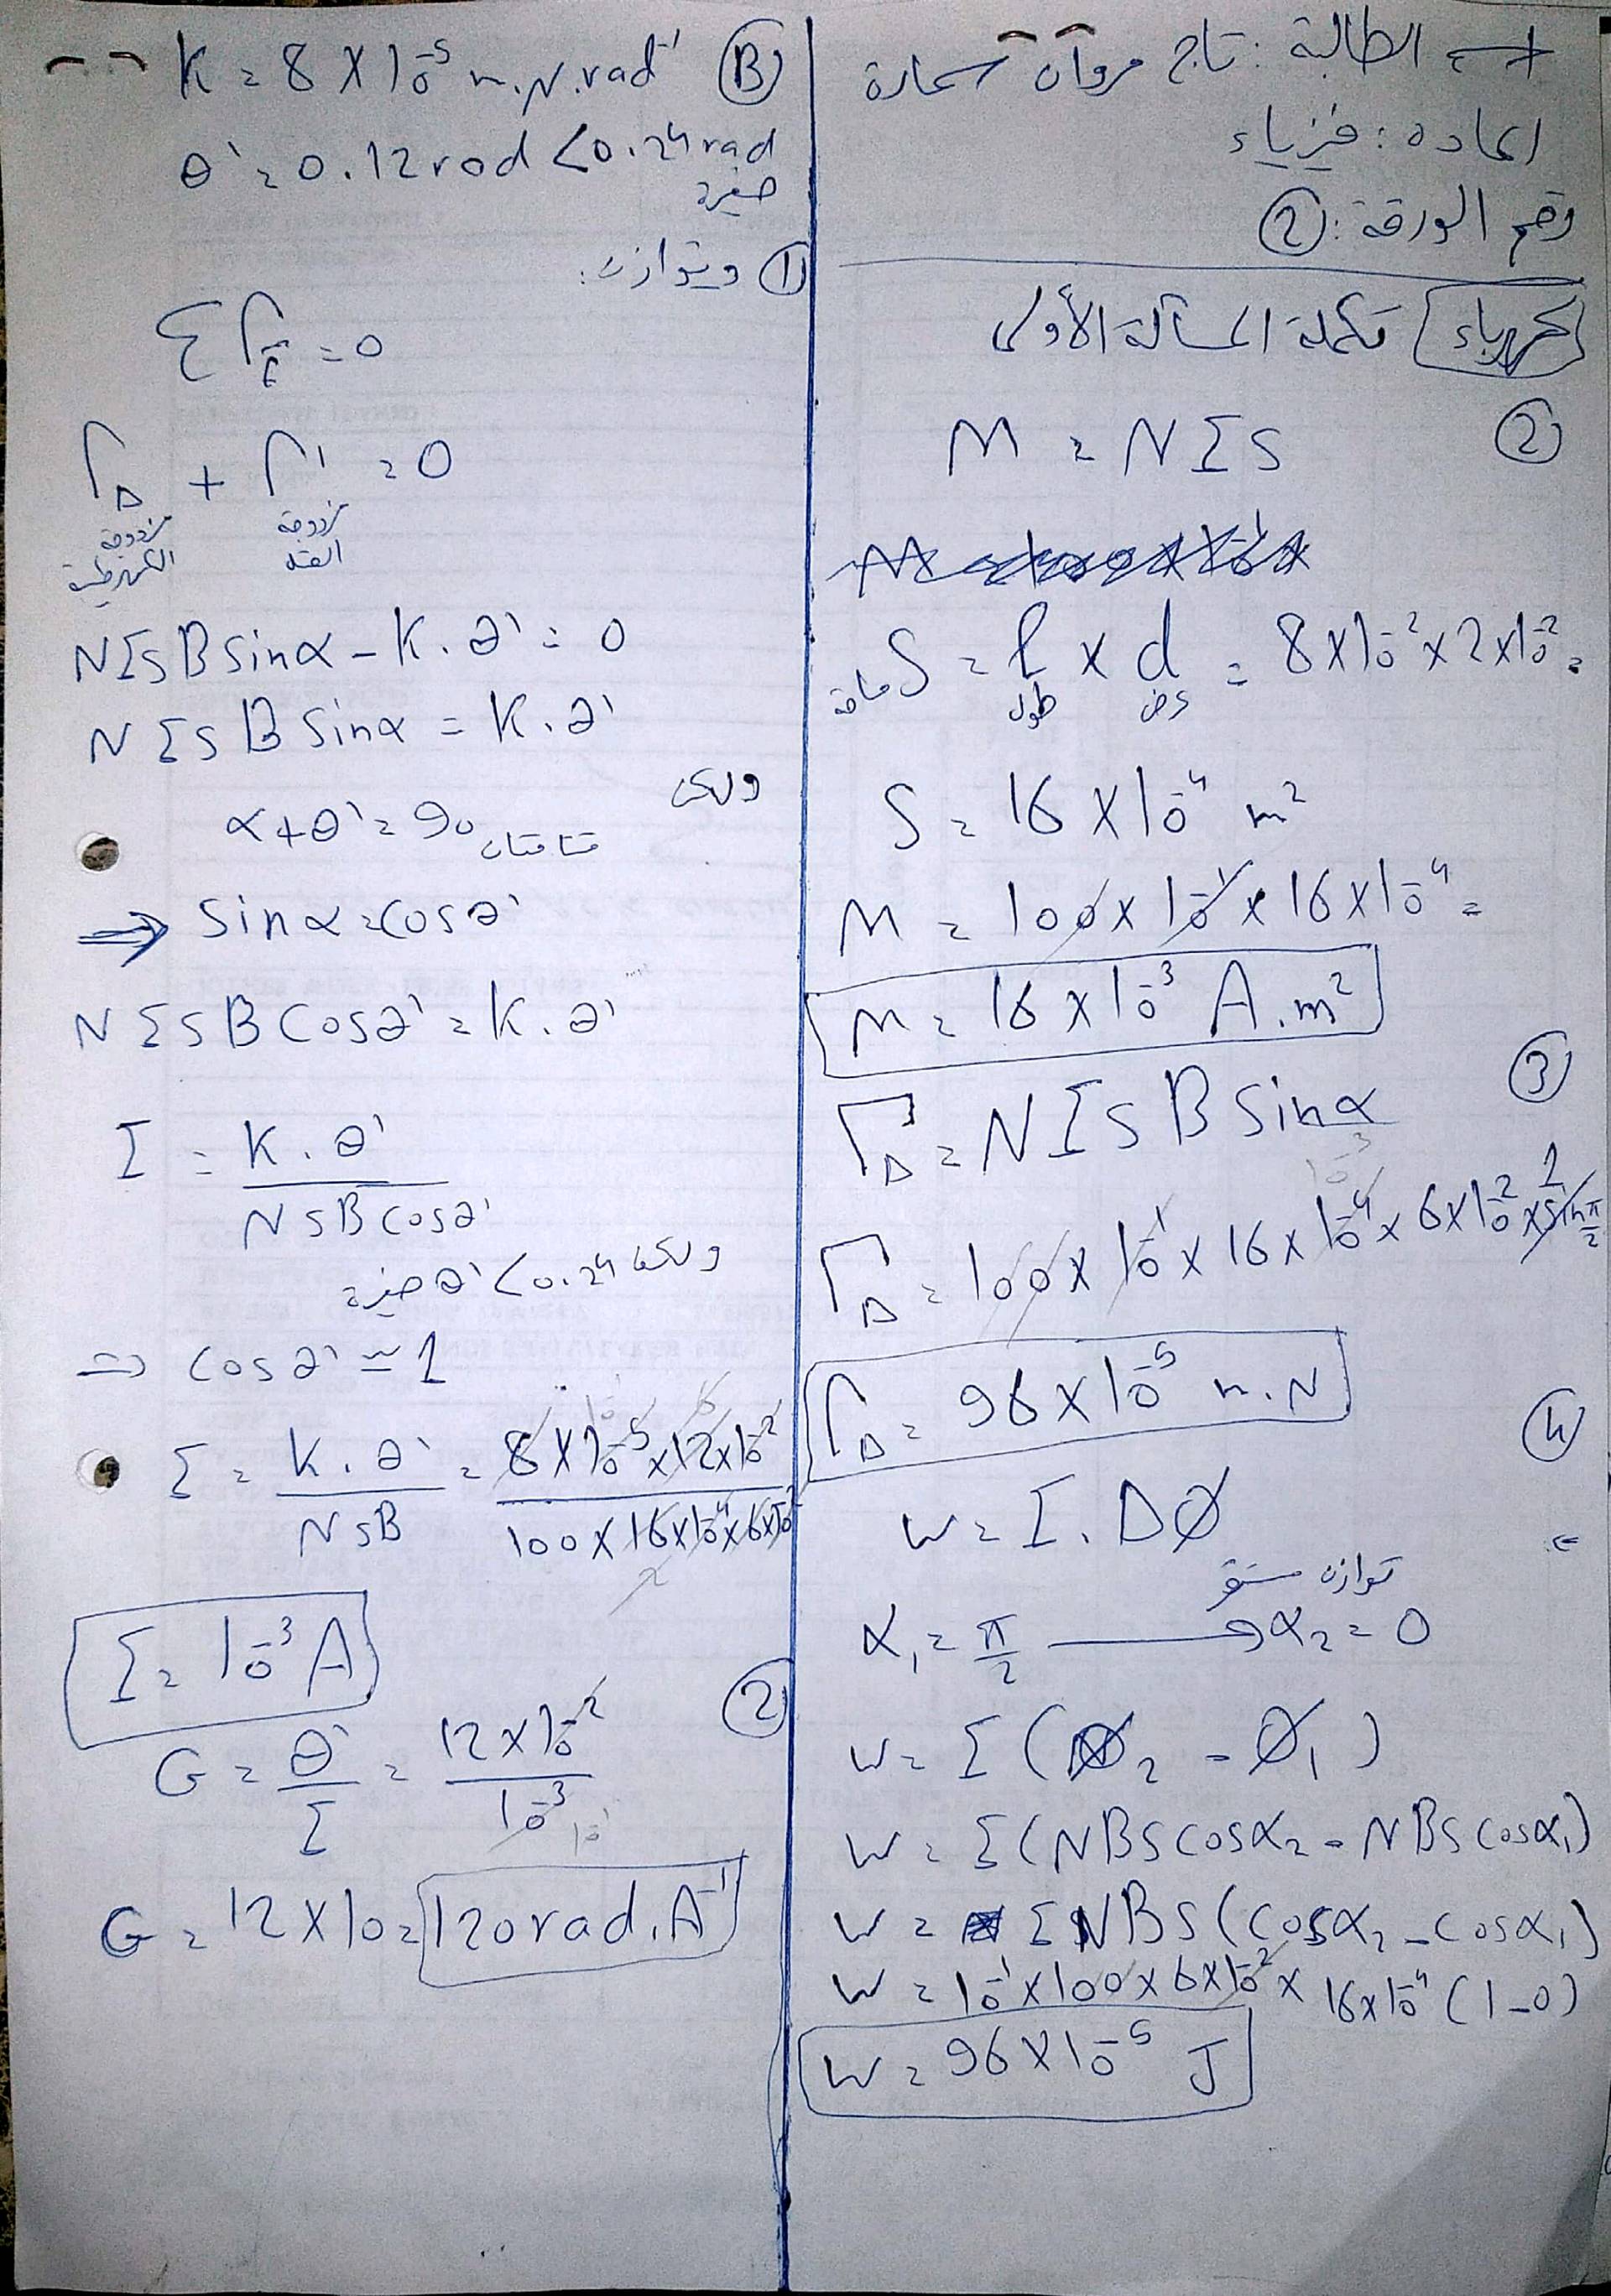 الطالبة: تاج مروان سعادة
المادة: فيزياء
رقم الورقة: ②
كهرباء تكملة المسألة الأولى
②
M = NIS
مساحة S = l طول × d عرض = 8×10⁻²×2×10⁻² =
S = 16×10⁻⁴ m²
M = 100×10⁻¹×16×10⁻⁴ =
M = 16×10⁻³ A.m²
③
Γ_Δ = NISB sinα
Γ_Δ = 100×10⁻¹×16×10⁻⁴×6×10⁻²×sin π/2
Γ_Δ = 96×10⁻⁵ m.N
④
W = I.ΔΦ
توازن مستقر
α₁ = π/2 → α₂ = 0
W = I(Φ₂ - Φ₁)
W = I(NBS cosα₂ - NBS cosα₁)
W = INBS(cosα₂ - cosα₁)
W = 10⁻¹×100×6×10⁻²×16×10⁻⁴(1-0)
W = 96×10⁻⁵ J
Ⓑ K = 8×10⁻⁵ m.N.rad⁻¹
θ' = 0.12 rad < 0.24 rad
صغيرة
① وتوازن:
ΣΓ = 0
Γ_Δ + Γ' = 0
مزدوجة الكهرطيسية
مزدوجة الفتل
NISB sinα - K.θ' = 0
NISB sinα = K.θ'
ولكن
α+θ' = 90 متتامتان
⇒ sinα = cosθ'
NISB cosθ' = K.θ'
I = K.θ' / NSB cosθ'
ولكن θ' < 0.24 صغيرة
⇒ cosθ' ≃ 1
I = K.θ' / NSB = 8×10⁻⁵×12×10⁻² / 100×16×10⁻⁴×6×10⁻²
I = 10⁻³ A
②
G = θ' / I = 12×10⁻² / 10⁻³
G = 12×10 = 120 rad.A⁻¹